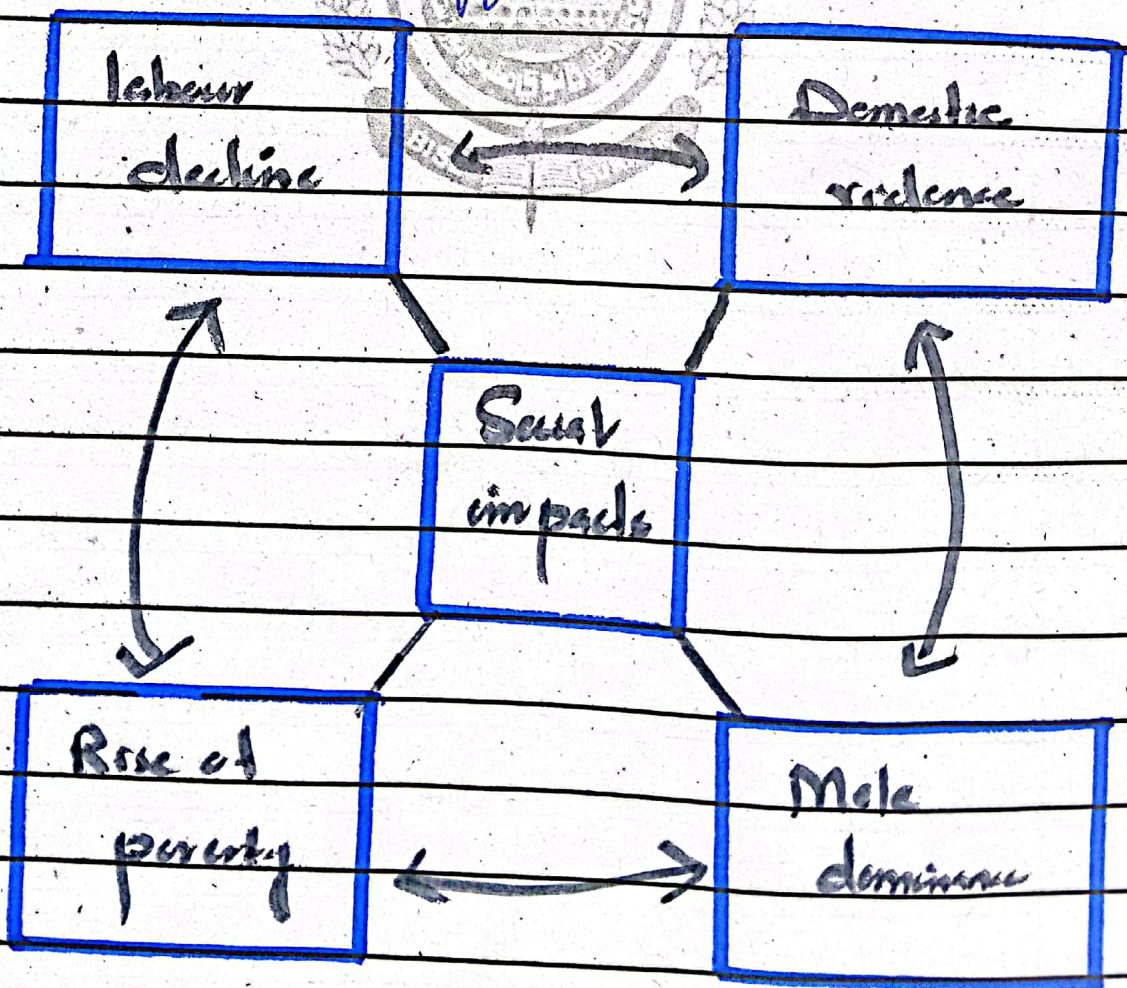 labour
decline
Domestic
violence
Social
impacts
Rise of
poverty
Male
dominance